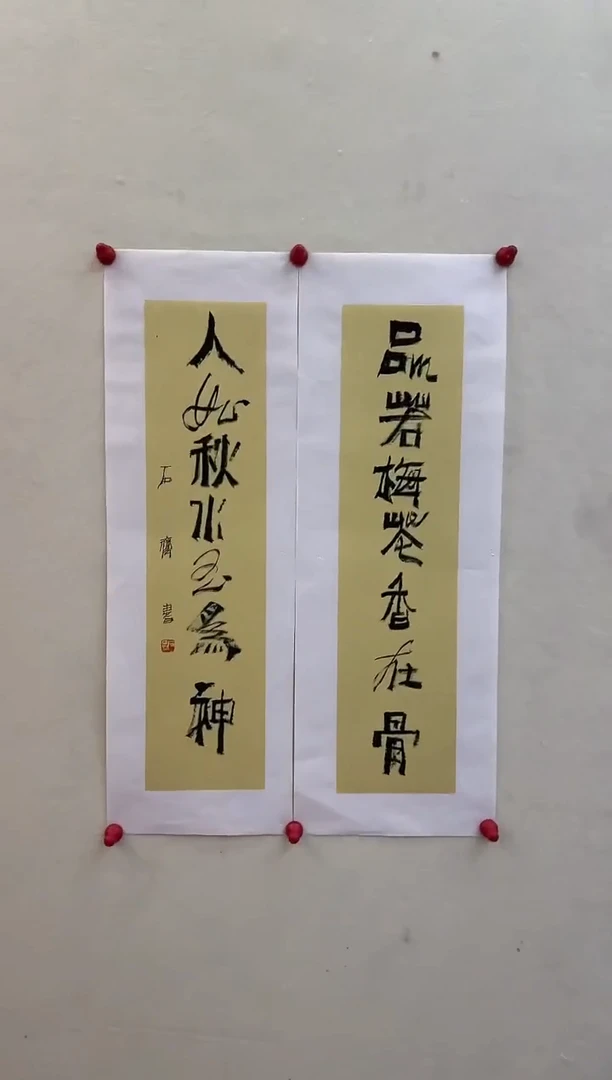 品若梅花香在骨
人如秋水玉為神
石齋書